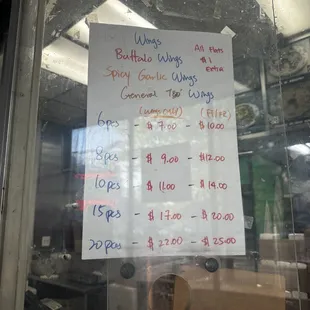 Wings
Buffalo Wings
All Flats
$1
Extra
Spicy Garlic Wings
General Tso Wings
(wings only) (FF/FR)
6pcs - $7.00 - $10.00
8pcs - $9.00 - $12.00
10pcs - $11.00 - $14.00
15pcs - $17.00 - $20.00
20pcs - $22.00 - $25.00